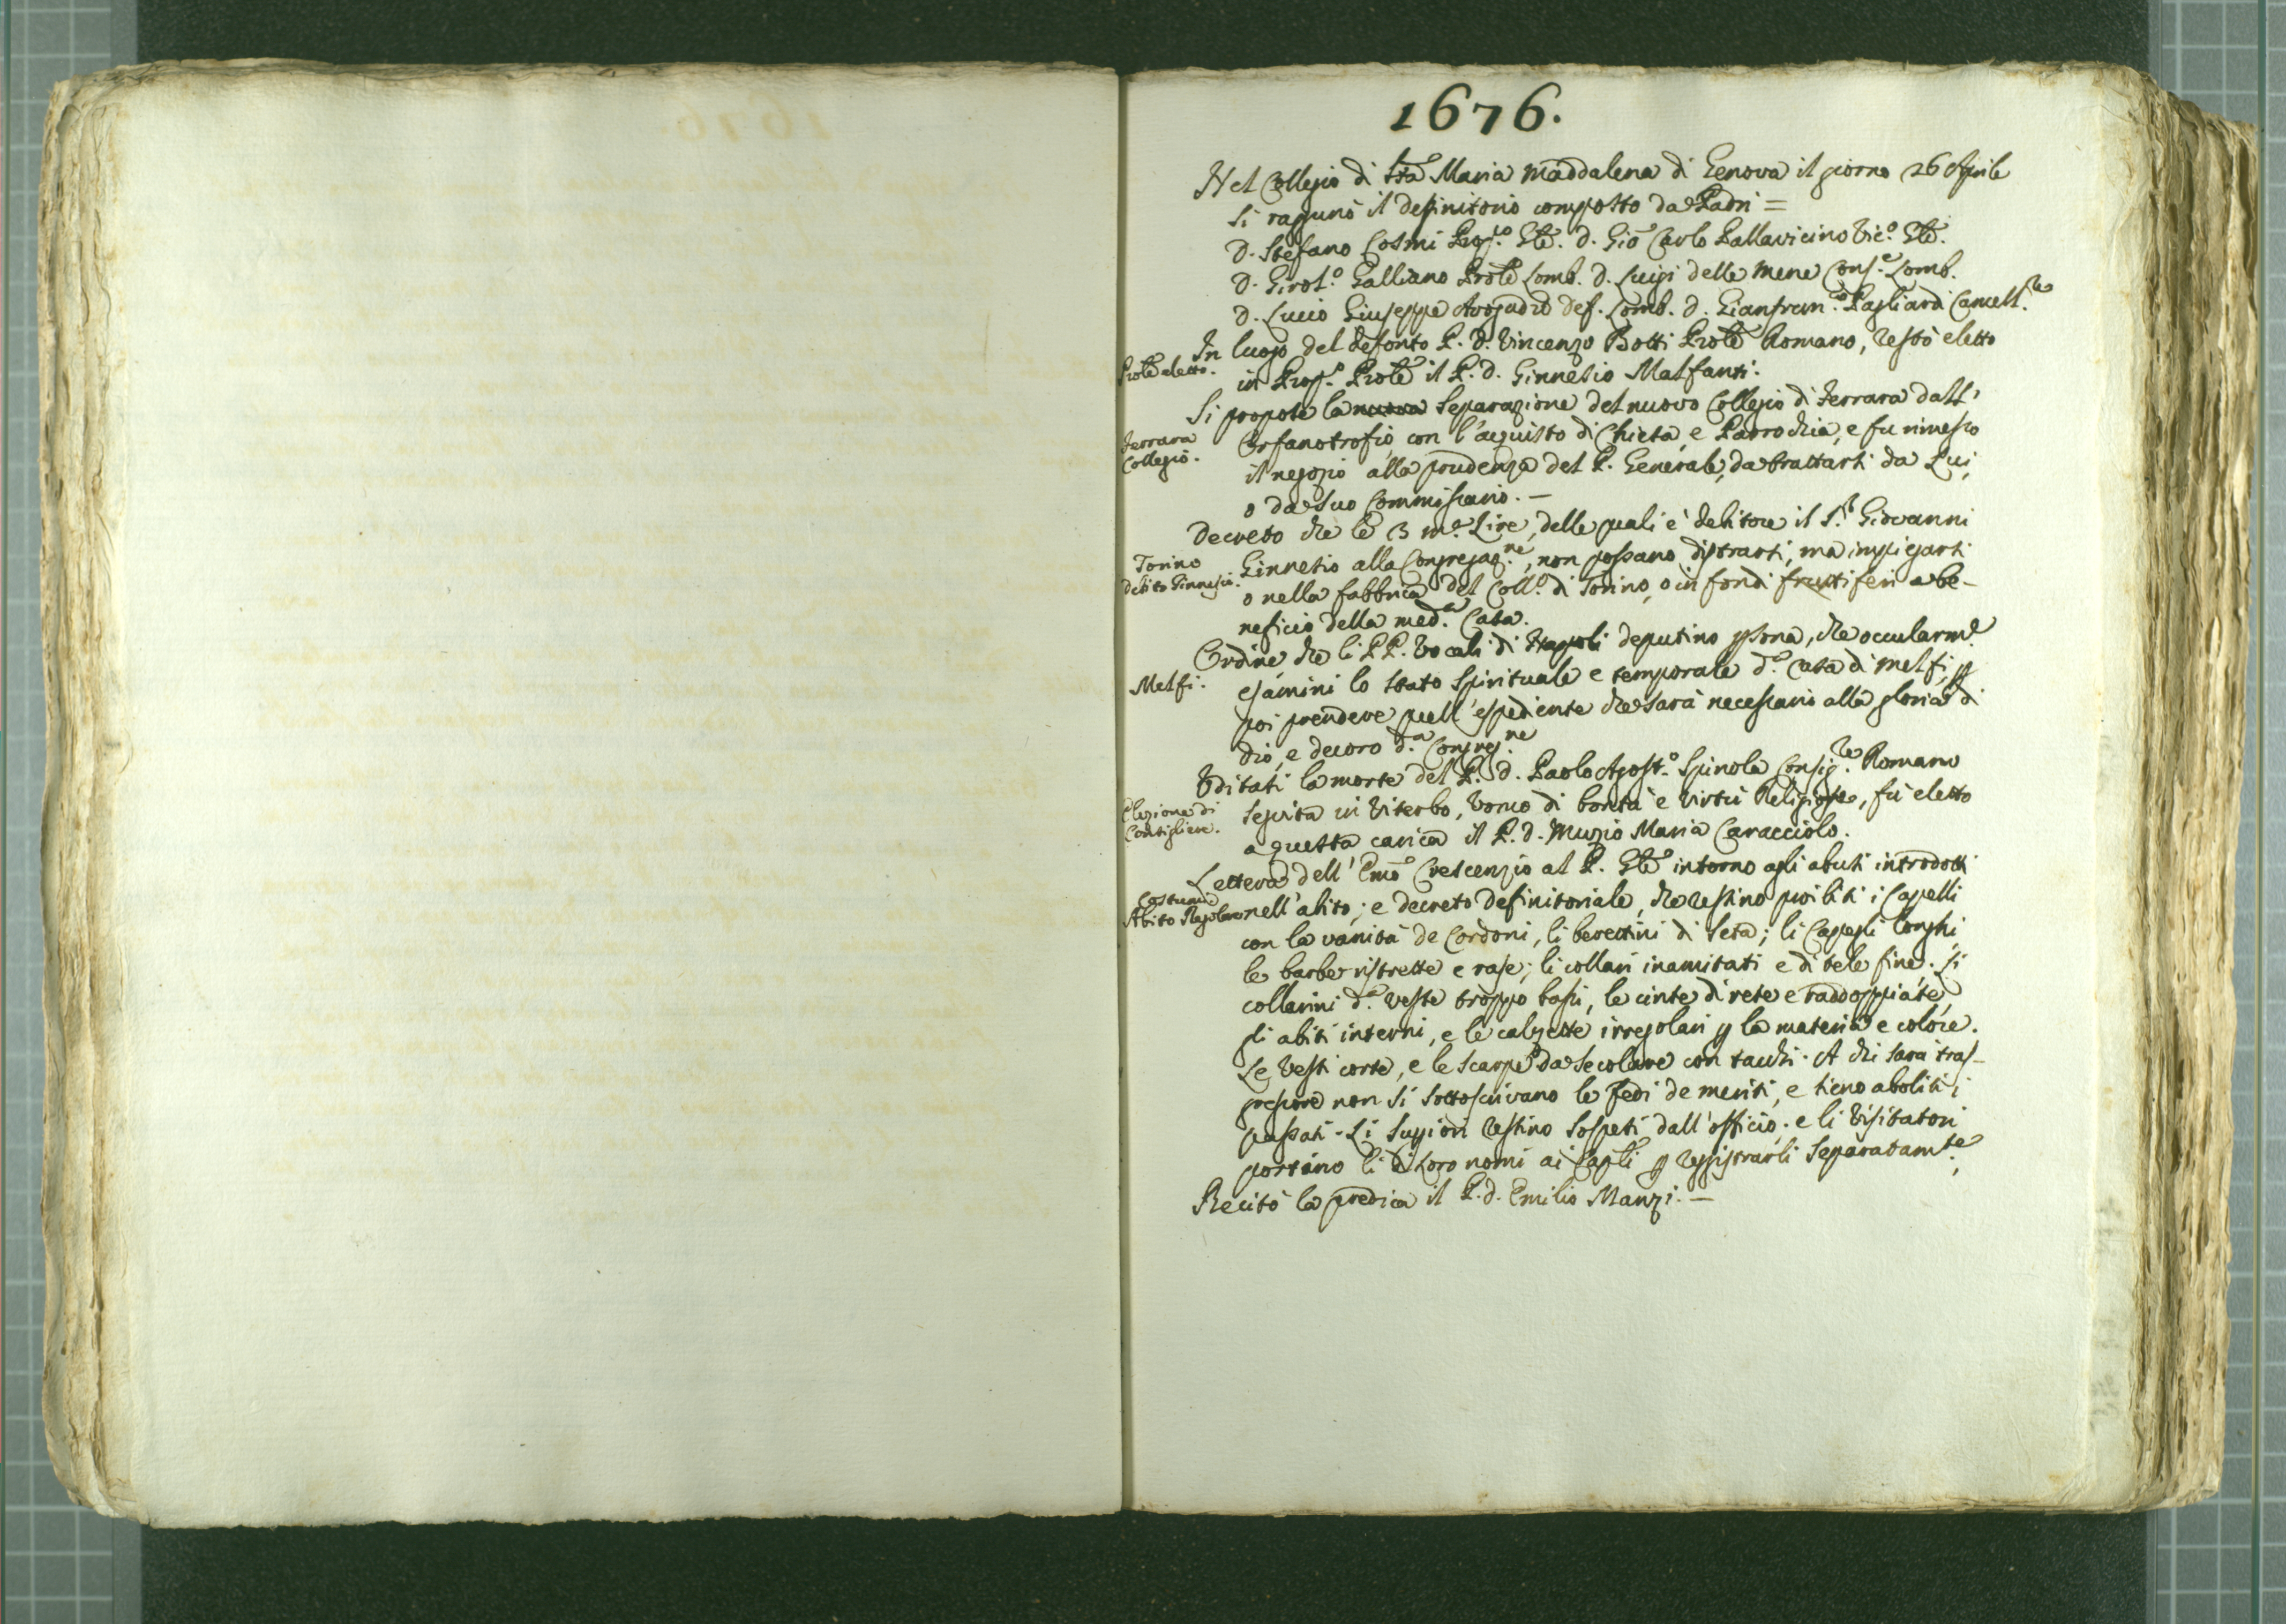 1676.
Nel Collegio di Sta Maria Maddalena di Genova il giorno 26 Aprile
si ragunò il definitorio composto da Padri =
D. Stefano Cosmi Prop.to Gle. D. Gio Carlo Pallavicino Vic.o Gle.
D. Girol.o Galliano Prole Lomb. D. Luigi delle Mene Cons.e Lomb.
D. Lucio Giuseppe Avogadro Def. Lomb. D. Gianfran.co Pagliardi Cancell.re
In luogo del defonto P. D. Vincenzo Botti Prole Romano, restò eletto
Prole eletto.
in Prop.o Prole il P. D. Ginnesio Malfanti.
Si propose la nuova separazione del nuovo Collegio di Ferrara dall'
Ferrara
Collegio.
Orfanotrofio con l'acquisto di Chiesa e Parrochia, e fu rimesso
il negozio alla prudenza del P. Generale, da trattarsi da Lui,
o da suo Commissario. —
Decreto che le 3 m.a Lire, delle quali è debitore il S.r Giovanni
Torino
debito Ginnesio.
Ginnesio alla Congregaz.ne, non possano distrarsi, ma impiegarsi
o nella fabbrica del Coll.o di Torino, o in fondi fruttiferi a be-
neficio della med.a Casa.
Ordine che li PP. Vocali di Napoli deputino psona, che occularm.e
Melfi.
esamini lo stato spirituale e temporale d.a Casa di Melfi, p
poi prendere quell'espediente che sarà necessario alla gloria di
Dio, e decoro d.a Congreg.ne
Uditasi la morte del P. D. Paolo Agost.o Spinola Consig.re Romano
Elezione di
Consigliere.
seguita in Viterbo, Uomo di bontà e virtù Religiose, fù eletto
a questa carica il P. D. Muzio Maria Caracciolo.
Lettera dell' Emo Crescenzio al P. Gle intorno agli abusi introdotti
Costume
Abito Regolare
nell'abito; e decreto definitoriale, che restino proibiti i Capelli
con la vanità de Cordoni, li berettini di seta; li Capegli longhi
le barbe ristrette e rase; li collari inamitati e di tele fine. Li
collarini d.a veste troppo bassi, le cinte di rete e raddoppiate,
gli abiti interni, e le calzette irregolari p la materia e colore.
Le Vesti corte, e le scarpe da secolare con tacchi. A chi sarà tras-
gressore non si sottoscrivano le fedi de meriti, e sieno aboliti i
passati. Li Supiori restino sospesi dall'officio. e li Visitatori
portino li di loro nomi ai Capli p reggistrarli separatam.te
Recitò la predica il P. D. Emilio Manzi. —